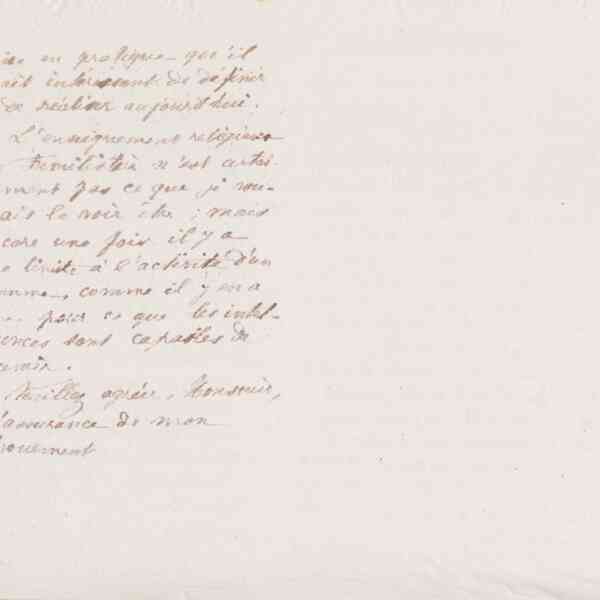 en pratique qu'il
intéressant de définir
de réaliser aujourd'hui.
L'enseignement religieux
Familistère n'est certai-
ment pas ce que je vou-
ais le voir être ; mais
core une fois il y a
e limite à l'activité d'un
omme, comme il y en a
pour ce que les intel-
ences sont capables de
Veuillez agréer, Monsieur,
l'assurance de mon
vouement